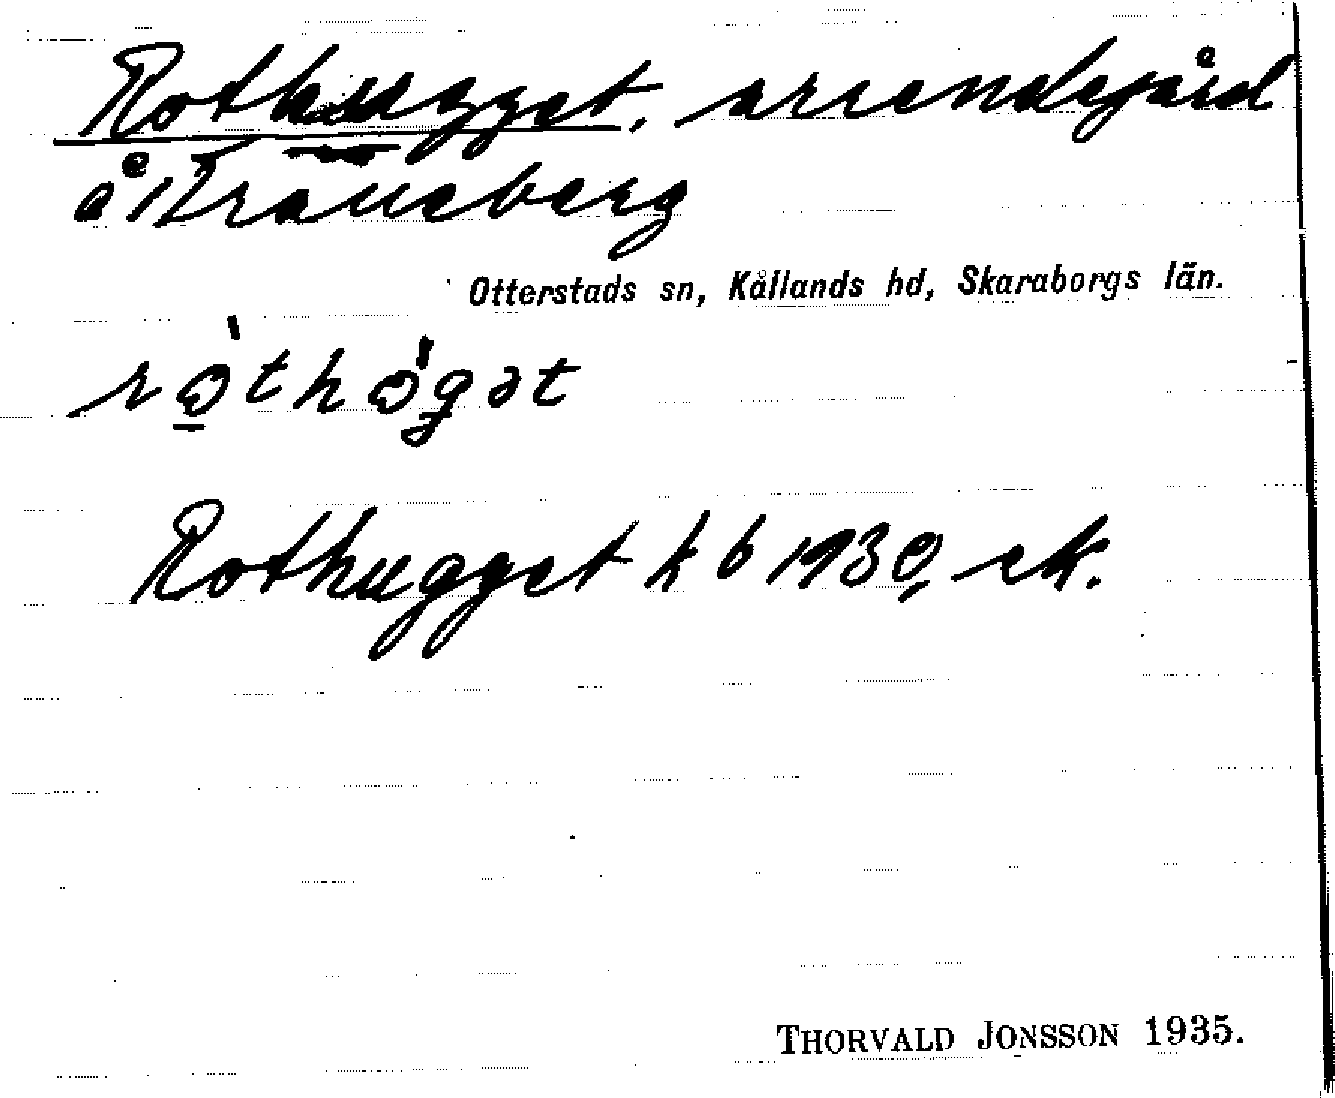 Rothugget, arrendegård
å Traneberg
Otterstads sn, Kållands hd, Skaraborgs län.
Rothugget kb 1930, ek.
THORVALD JONSSON 1935.